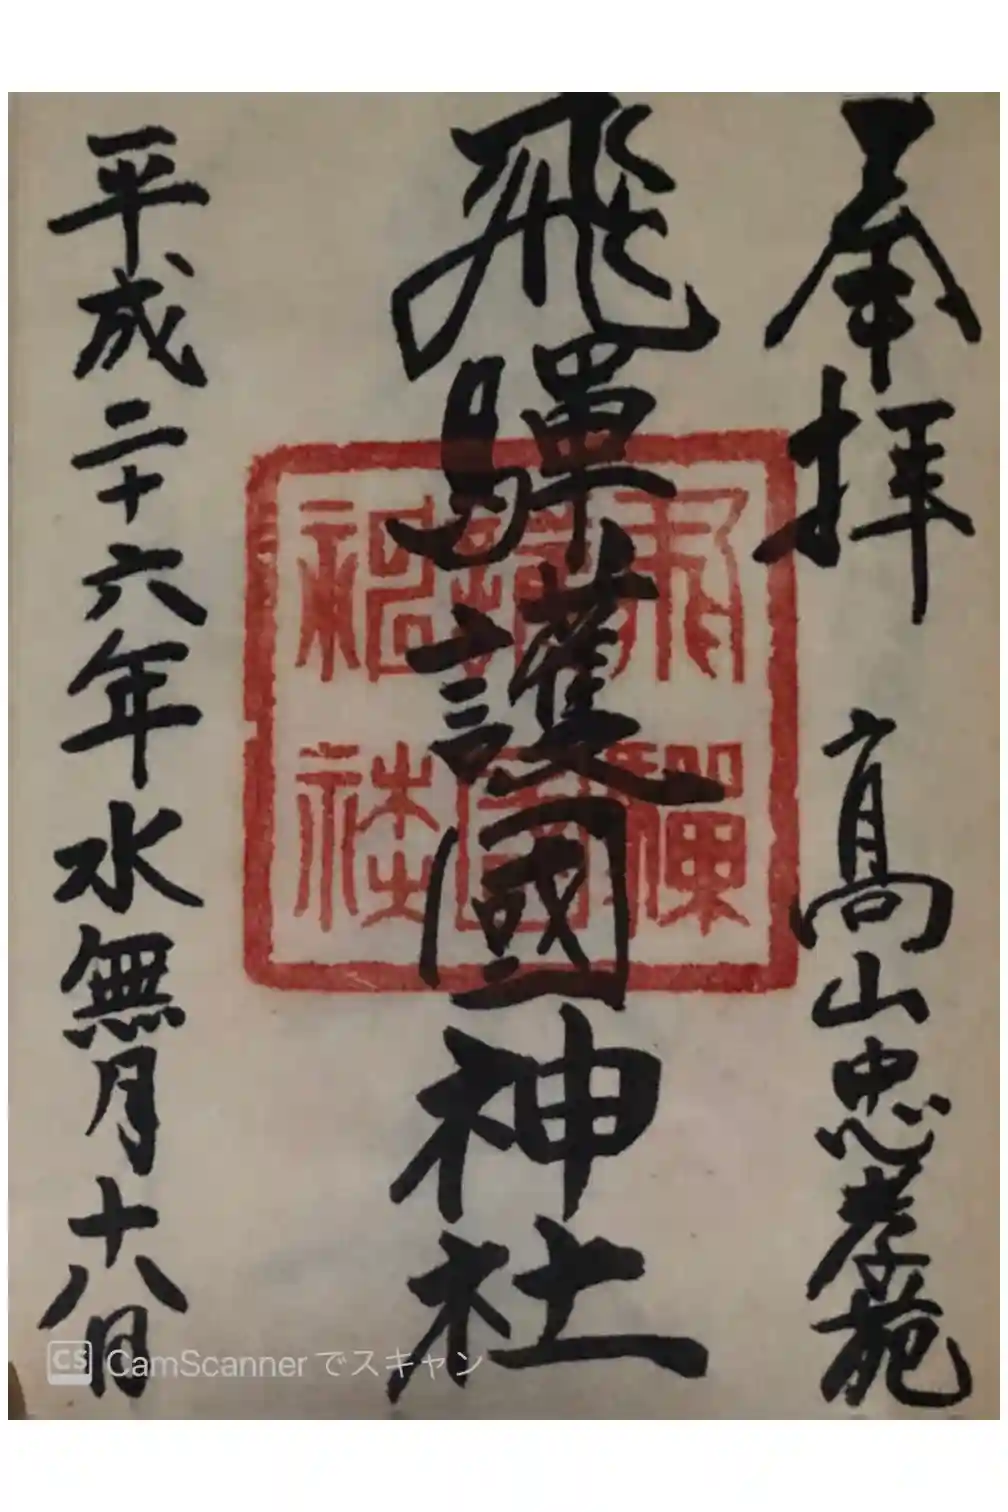 奉拝 高山忠孝苑
飛騨護國神社
平成二十六年水無月十八日
飛騨
護國
神社
CS CamScanner でスキャン